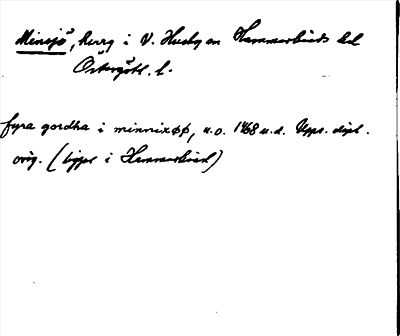 Minsjö, herrg i V. Husby sn Hammarkinds hd
Östergötl. l.
fyra gordha i minnixøø, u.o. 1468 u.d. Upps. dipl.
orig. (ligger i Hammarkind)